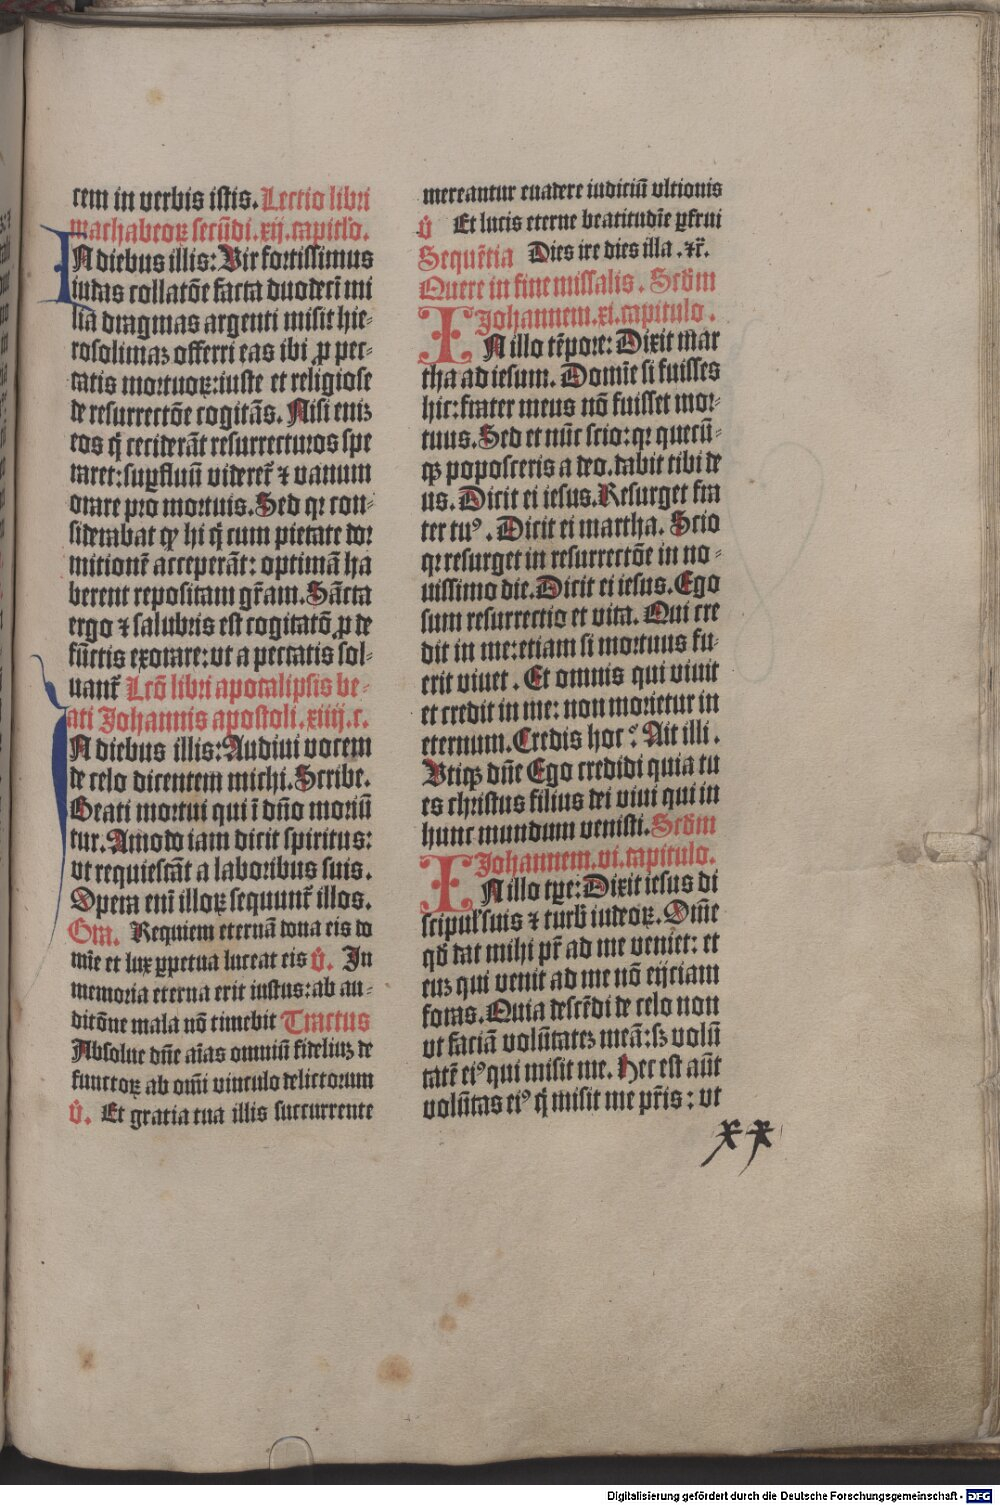 cem in verbis istis. Lectio libri
machabeoꝝ secūdi .xij. capitlo.
IN diebus illis: Vir fortissimus
iudas collatōe facta duodecī mi
lia dragmas argenti misit hie-
rosolimaꝫ offerri eas ibi ꝓ pec-
catis mortuoꝝ: iuste et religiose
de resurrectōe cogitās. Nisi eniꝫ
eos q̄ ceciderāt resurrecturos spe
raret: suꝑfluū videret᷑ ⁊ vanum
orare pro mortuis. Sed qꝛ con-
siderabat ꝙ hi q̄ cum pietate dor
mitionē acceperāt: optimā ha
berent repositam gr̄am. Sācta
ergo ⁊ salubris est cogitatō ꝓ de
fūctis exorare: vt a peccatis sol-
uant᷑ Lcō libri apocalipsis be-
ati Johannis apostoli .xiiij. c.
IN diebus illis: Audiui vocem
de celo dicentem michi. Scribe.
Beati mortui qui ī dn̄o moriū
tur. Amodo iam dicit spiritus:
vt requiescāt a laboribus suis.
Opera eni illoꝝ sequunt᷑ illos.
Gra. Requiem eternā dona eis do
mīe et lux ꝑpetua luceat eis ℣. In
memoria eterna erit iustus: ab au-
ditōne mala nō timebit Tractus
Absolue dn̄e aīas omniū fideliuꝫ de
functoꝝ ab om̄i vinculo delictorum
℣. Et gratia tua illis succurrente
mereantur euadere iudiciū vltionis
℣ Et lucis eterne beatitudīe ꝑfrui
Sequētia Dies ire dies illa .⁊c̄.
Quere in fine missalis. Scd̄m
Johannem .xi. capitulo.
IN illo tēpore: Dixit mar
tha ad iesum. Domīe si fuisses
hic: frater meus nō fuisset mor-
tuus. Sed et nūc scio: qꝛ quecū-
qꝫ poposceris a deo. dabit tibi de
us. Dicit ei iesus. Resurget fra
ter tuꝰ. Dicit ei martha. Scio
qꝛ resurget in resurrectōe in no-
uissimo die. Dicit ei iesus. Ego
sum resurrectio et vita. Qui cre
dit in me: etiam si mortuus fu-
erit viuet. Et omnis qui viuit
et credit in me: non morietur in
eternum. Credis hoc? Ait illi.
Vtiqꝫ dn̄e Ego credidi quia tu
es christus filius dei viui qui in
hunc mundum venisti. Scd̄m
Johannem .vi. capitulo.
IN illo tꝑe: Dixit iesus di
scipul' suis ⁊ turb̄ iudeoꝝ. Om̄e
qd̄ dat mihi pr̄ ad me veniet: et
euꝫ qui venit ad me nō eijciam
foras. Quia descēdi de celo non
vt faciā volūtateꝫ meā: sꝫ volū
tatē eiꝰ qui misit me. Hec est aūt
volūtas eiꝰ q̄ misit me pr̄is: vt
Digitalisierung gefördert durch die Deutsche Forschungsgemeinschaft - DFG